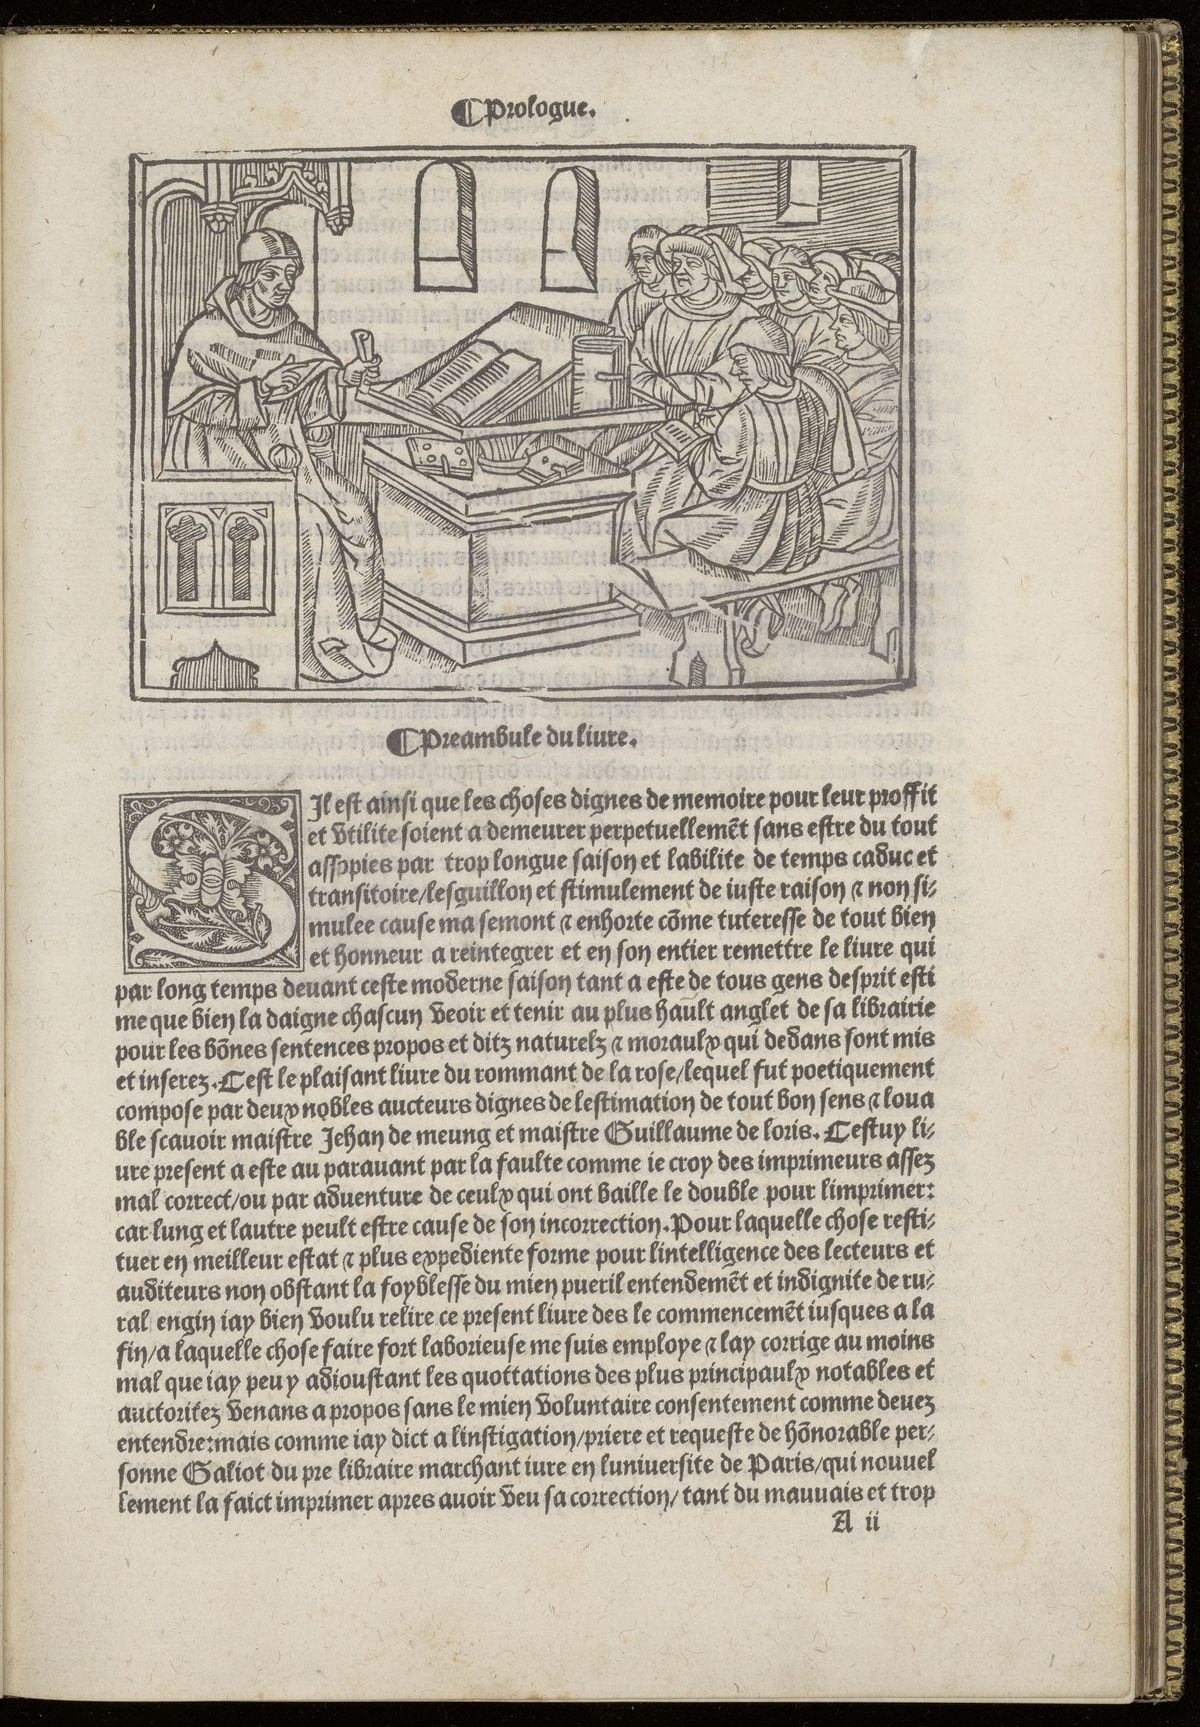 ¶Prologue.
¶Preambule du liure.
SIl est ainsi que les choses dignes de memoire pour leur proffit
et vtilite soient a demeurer perpetuellemẽt sans estre du tout
assopies par trop longue saison et labilite de temps caduc et
transitoire/lesguillon et stimulement de iuste raison ⁊ non si⸗
mulee cause ma semont ⁊ enhorte cõme tuteresse de tout bien
et honneur a reintegrer et en son entier remettre le liure qui
par long temps deuant ceste moderne saison tant a este de tous gens desprit esti
me que bien la daigne chascun veoir et tenir au plus hault anglet de sa librairie
pour les bõnes sentences propos et ditz naturelz ⁊ moraulx qui dedans sont mis
et inserez. Cest le plaisant liure du rommant de la rose/lequel fut poetiquement
compose par deux nobles aucteurs dignes de lestimation de tout bon sens ⁊ loua
ble scauoir maistre Jehan de meung et maistre Guillaume de loris. Cestuy li⸗
ure present a este au parauant par la faulte comme ie croy des imprimeurs assez
mal correct/ou par aduenture de ceulx qui ont baille le double pour limprimer:
car lung et lautre peult estre cause de son incorrection. Pour laquelle chose resti⸗
tuer en meilleur estat ⁊ plus expediente forme pour lintelligence des lecteurs et
auditeurs non obstant la foyblesse du mien pueril entendemẽt et indignite de ru⸗
ral engin iay bien voulu relire ce present liure des le commencemẽt iusques a la
fin/a laquelle chose faire fort laborieuse me suis employe ⁊ lay corrige au moins
mal que iay peu y adioustant les quottations des plus principaulx notables et
auctoritez venans a propos sans le mien voluntaire consentement comme deuez
entendre:mais comme iay dict a linstigation/priere et requeste de hõnorable per⸗
sonne Galiot du pre libraire marchant iure en luniuersite de Paris/qui nouuel
lement la faict imprimer apres auoir veu sa correction/tant du mauuais et trop
A ii